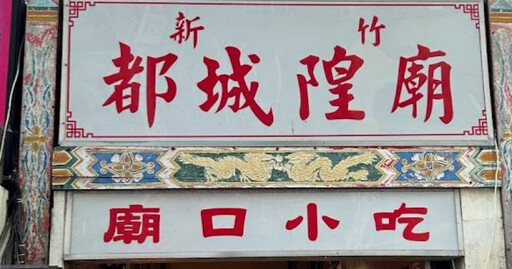 新竹
都城隍廟
廟口小吃